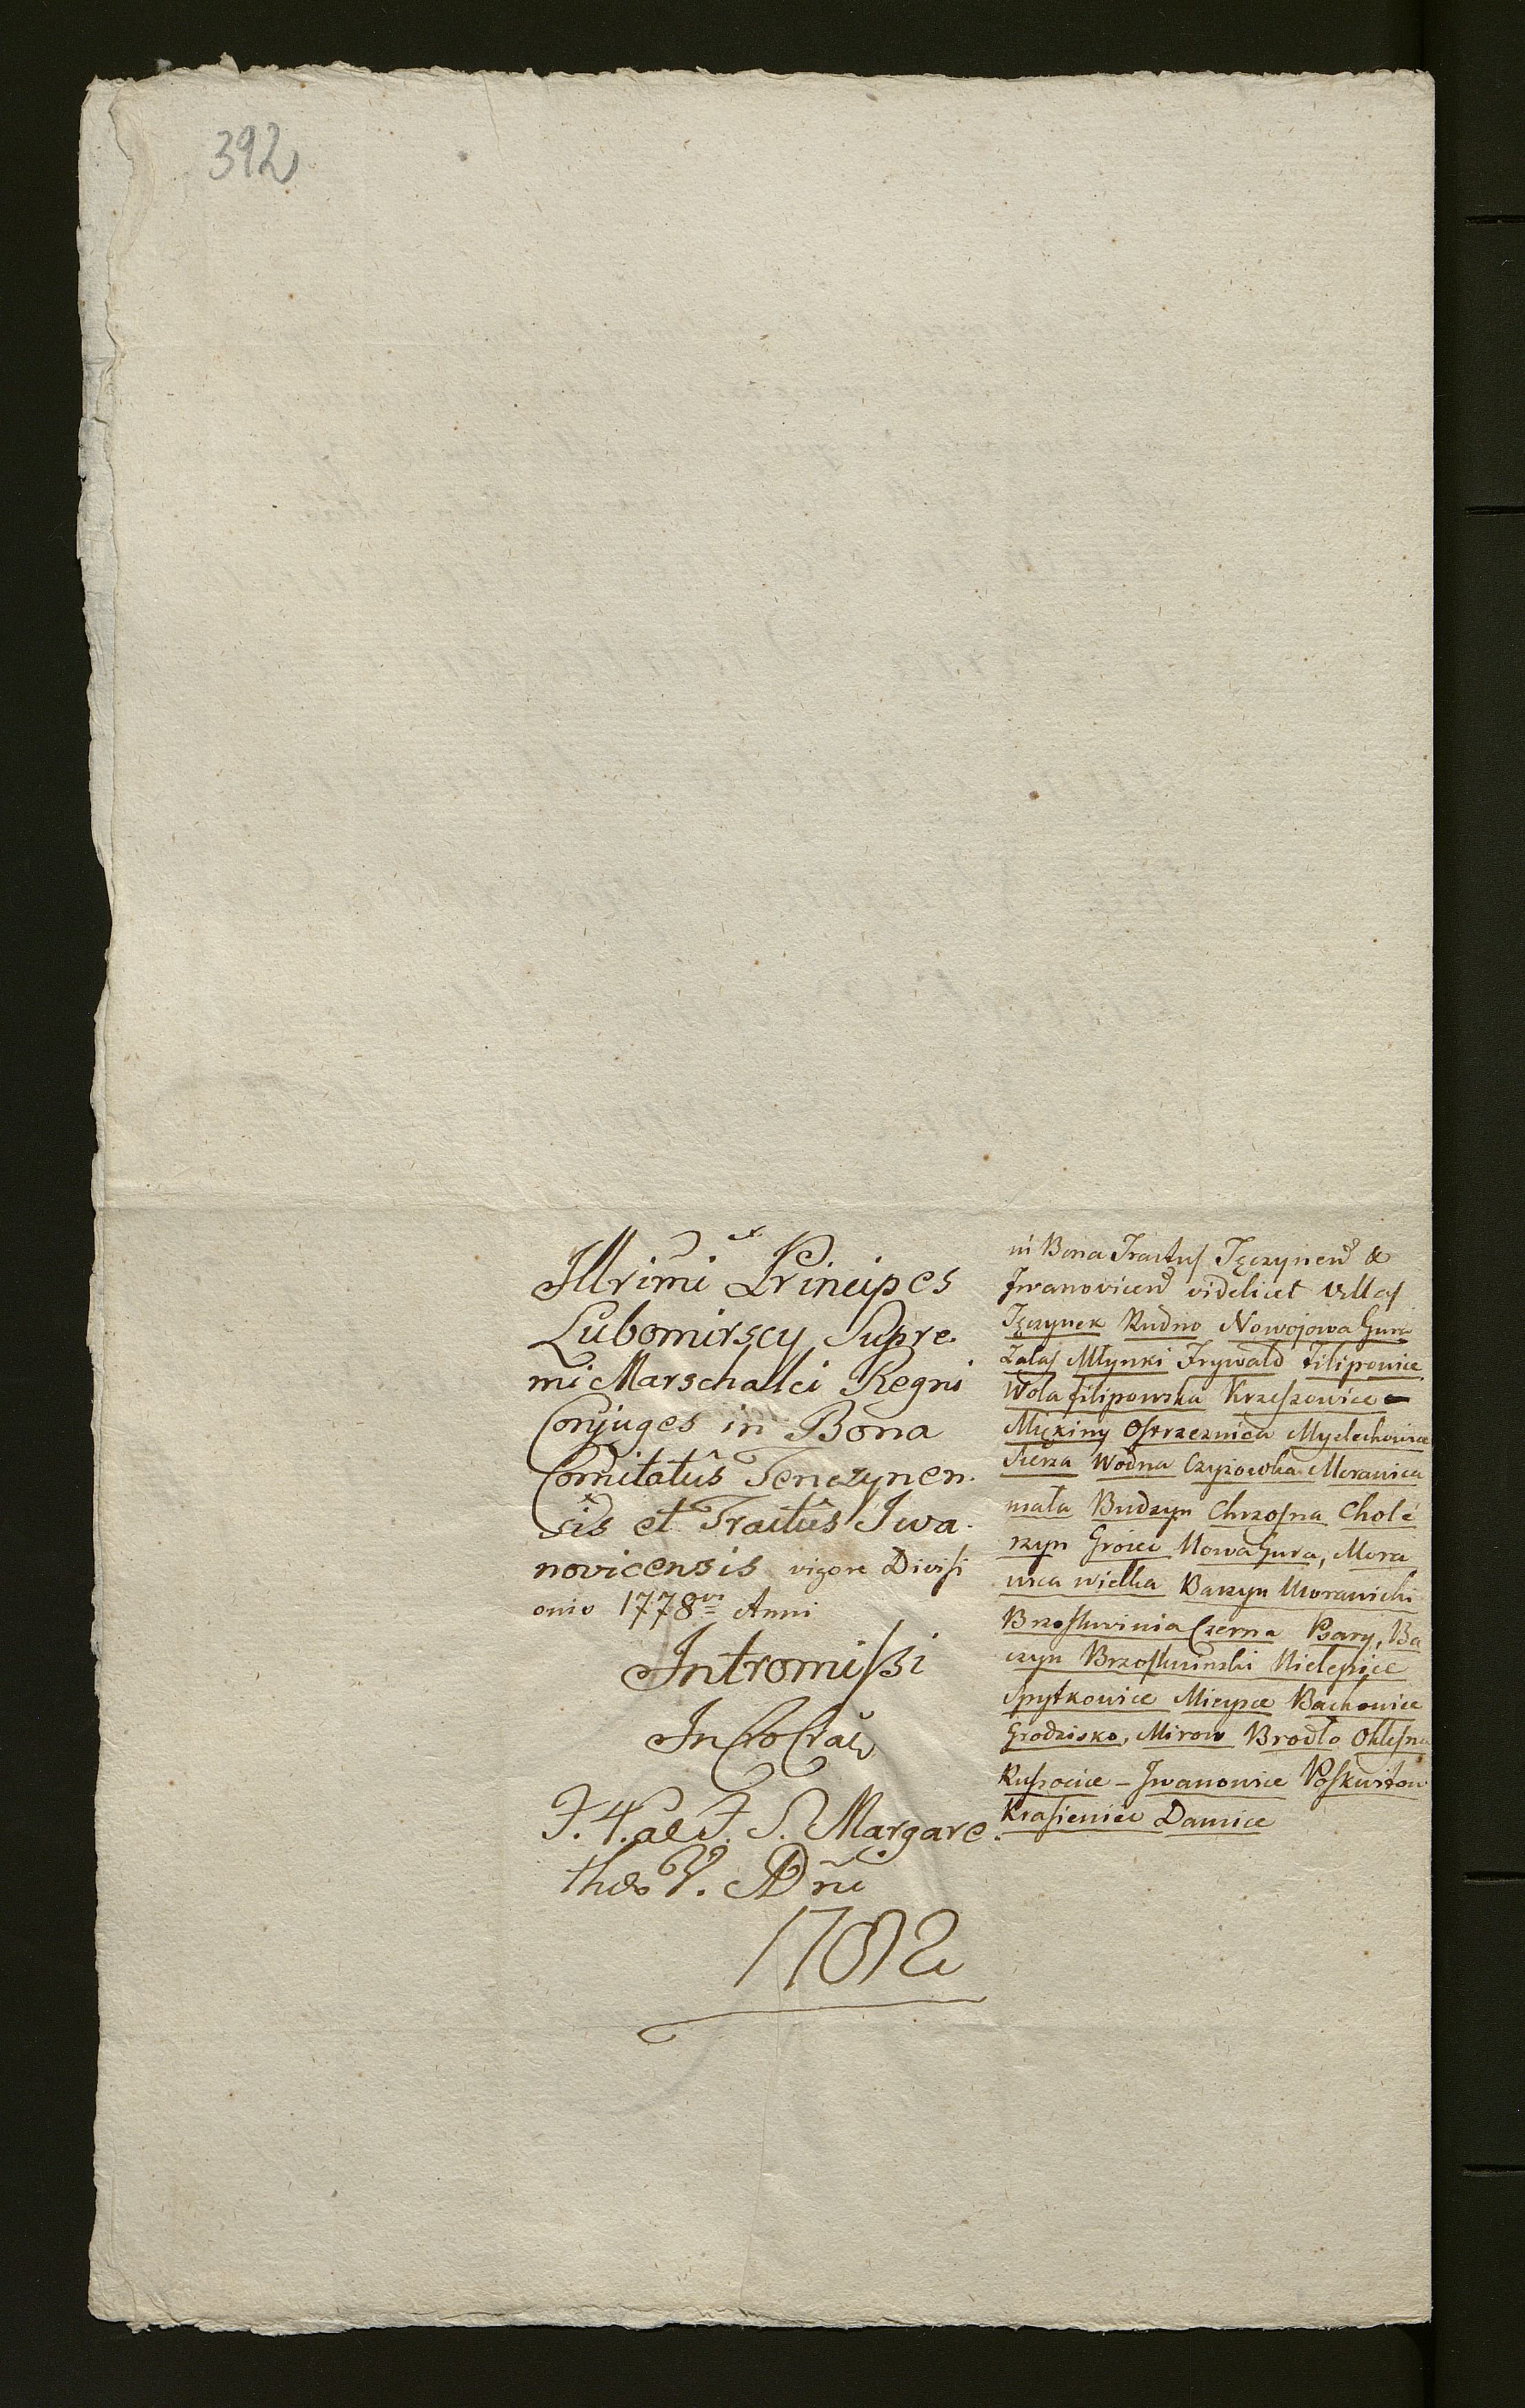 392
Illrimi Principes
Lubomirscy Supre
mi Marschalci Regni
Conjuges in Bona
Comitatûs Tenczynen
sis et Tractûs Iwa
novicensis vigore Divisi
onis 1778vi Anni
Intromissi
In Cro Crac
F. 4. ae F. S. Margare
thæ V. A Dni
1782
in Bona Tractus Tęczynen &
Iwanovicen videlicet Villas
Tęczynek Rudno Nowojowa Gura
Zalas Młynki Frywald Filipowice
Wola filipowska Krzeszowice
Miękiny Ostrzeznica Myslechowice
Siersza Wodna Czyzowka Morawica
mała Budzyn Chrosna Chole
rzyn Groiec Nowa Gura, Mora
wica wielka Baczyn Morawicki
Brzoskwinia Czerna Psary, Ba
czyn Brzoskwinski Nielepice
Spytkowice Mieysce Bachowice
Grodzisko, Mirow Brodło Oklesna
Rusocice – Iwanowice Poskwitow
Krasieniec Damice